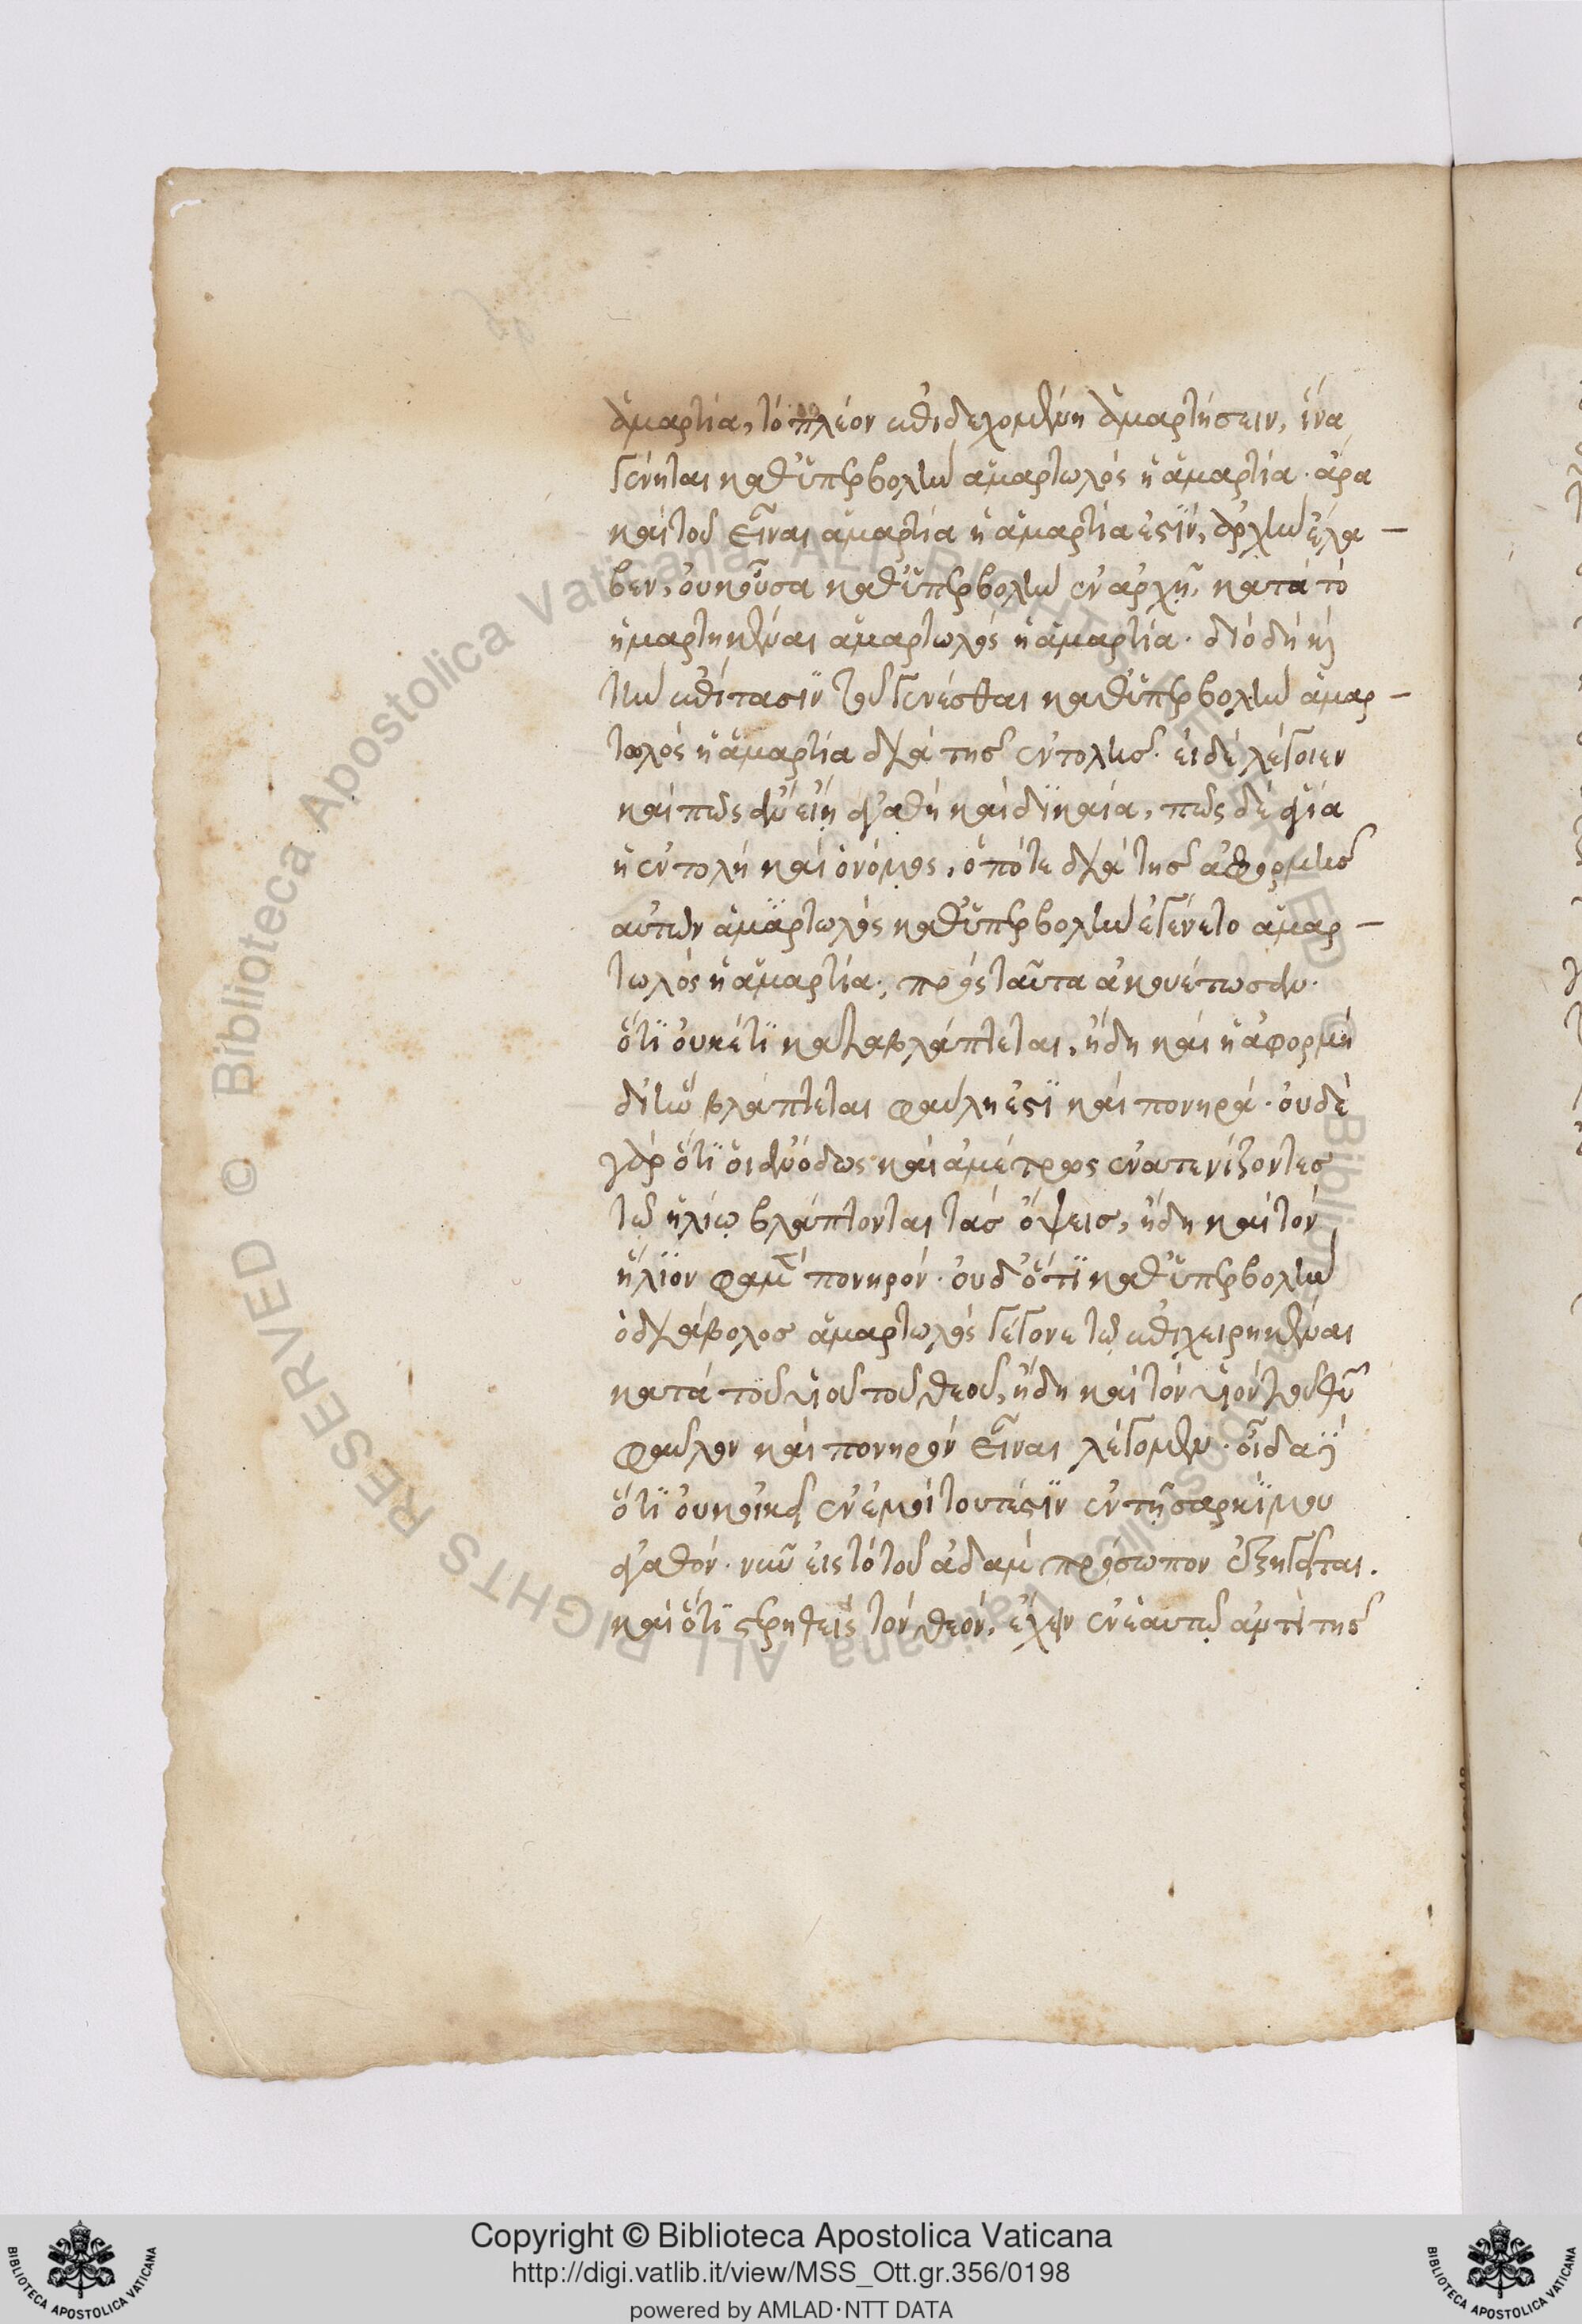 ἁμαρτία, τὸ πλέον ἐπιδεχομένη ἁμαρτήσειν, ἵνα
γένηται καθ' ὑπερβολὴν ἁμαρτωλός ἡ ἁμαρτία· ἄρα
καὶ τοῦ εἶναι ἁμαρτία ἡ ἁμαρτία ἐστὶν, ἀρχὴν ἔλα –
βεν, οὐκ οὖσα καθ' ὑπερβολὴν ἐν ἀρχῇ, κατὰ τὸ
ἡμαρτηκέναι ἁμαρτωλὸς ἡ ἁμαρτία· διὸ δὴ κ
τὴν ἐπίτασιν τοῦ γενέσθαι καθ' ὑπερβολὴν ἁμαρ –
τωλός ἡ ἁμαρτία διὰ τῆς ἐντολῆς· εἰ δὲ λέγοιεν
καὶ πῶς ἂν εἴη ἀγαθὴ καὶ δικαία, πῶς δὲ ἁγία
ἡ ἐντολὴ καὶ ὁ νόμος, ὁπότε διὰ τῆς ἀφορμῆς
αὐτῶν ἁμαρτωλὸς καθ' ὑπερβολὴν ἐγένετο ἁμαρ –
τωλός ἡ ἁμαρτία· πρὸς ταῦτα ἀκουέτωσαν·
ὅτι οὐκ ἔτι καταβλάπτεται, ἤδη καὶ ἡ ἀφορμὴ
δι' ἣν βλάπτεται φαύλη ἐστὶ καὶ πονηρά· οὐδὲ
γὰρ ὅτι οἱ ἀνόδως καὶ ἀμέτρως ἐνατενίζοντες
τῷ ἡλίῳ βλάπτονται τὰς ὄψεις, ἤδη καὶ τὸν
ἥλιον φαμὲν πονηρόν· οὐδ' ὅτι καθ' ὑπερβολὴν
ὁ διάβολος ἁμαρτωλὸς γέγονε τῷ ἐπιχειρηκέναι
κατὰ τοῦ υἱοῦ τοῦ θεοῦ, ἤδη καὶ τὸν υἱὸν τοῦ θῦ
φαῦλον καὶ πονηρὸν εἶναι λέγομεν· οἶδα γ
ὅτι οὐκ οἰκεῖ ἐν ἐμοὶ τουτέστιν ἐν τῇ σαρκί μου
ἀγαθόν· νῦν εἰς τὸ τοῦ ἀδὰμ πρόσωπον ἐξηγεῖται.
καὶ ὅτι στερηθεὶς τὸν θεὸν, ἔχειν ἐν ἑαυτῷ ἀρτὶ τῆς
Copyright © Biblioteca Apostolica Vaticana
http://digi.vatlib.it/view/MSS_Ott.gr.356/0198
powered by AMLAD·NTT DATA